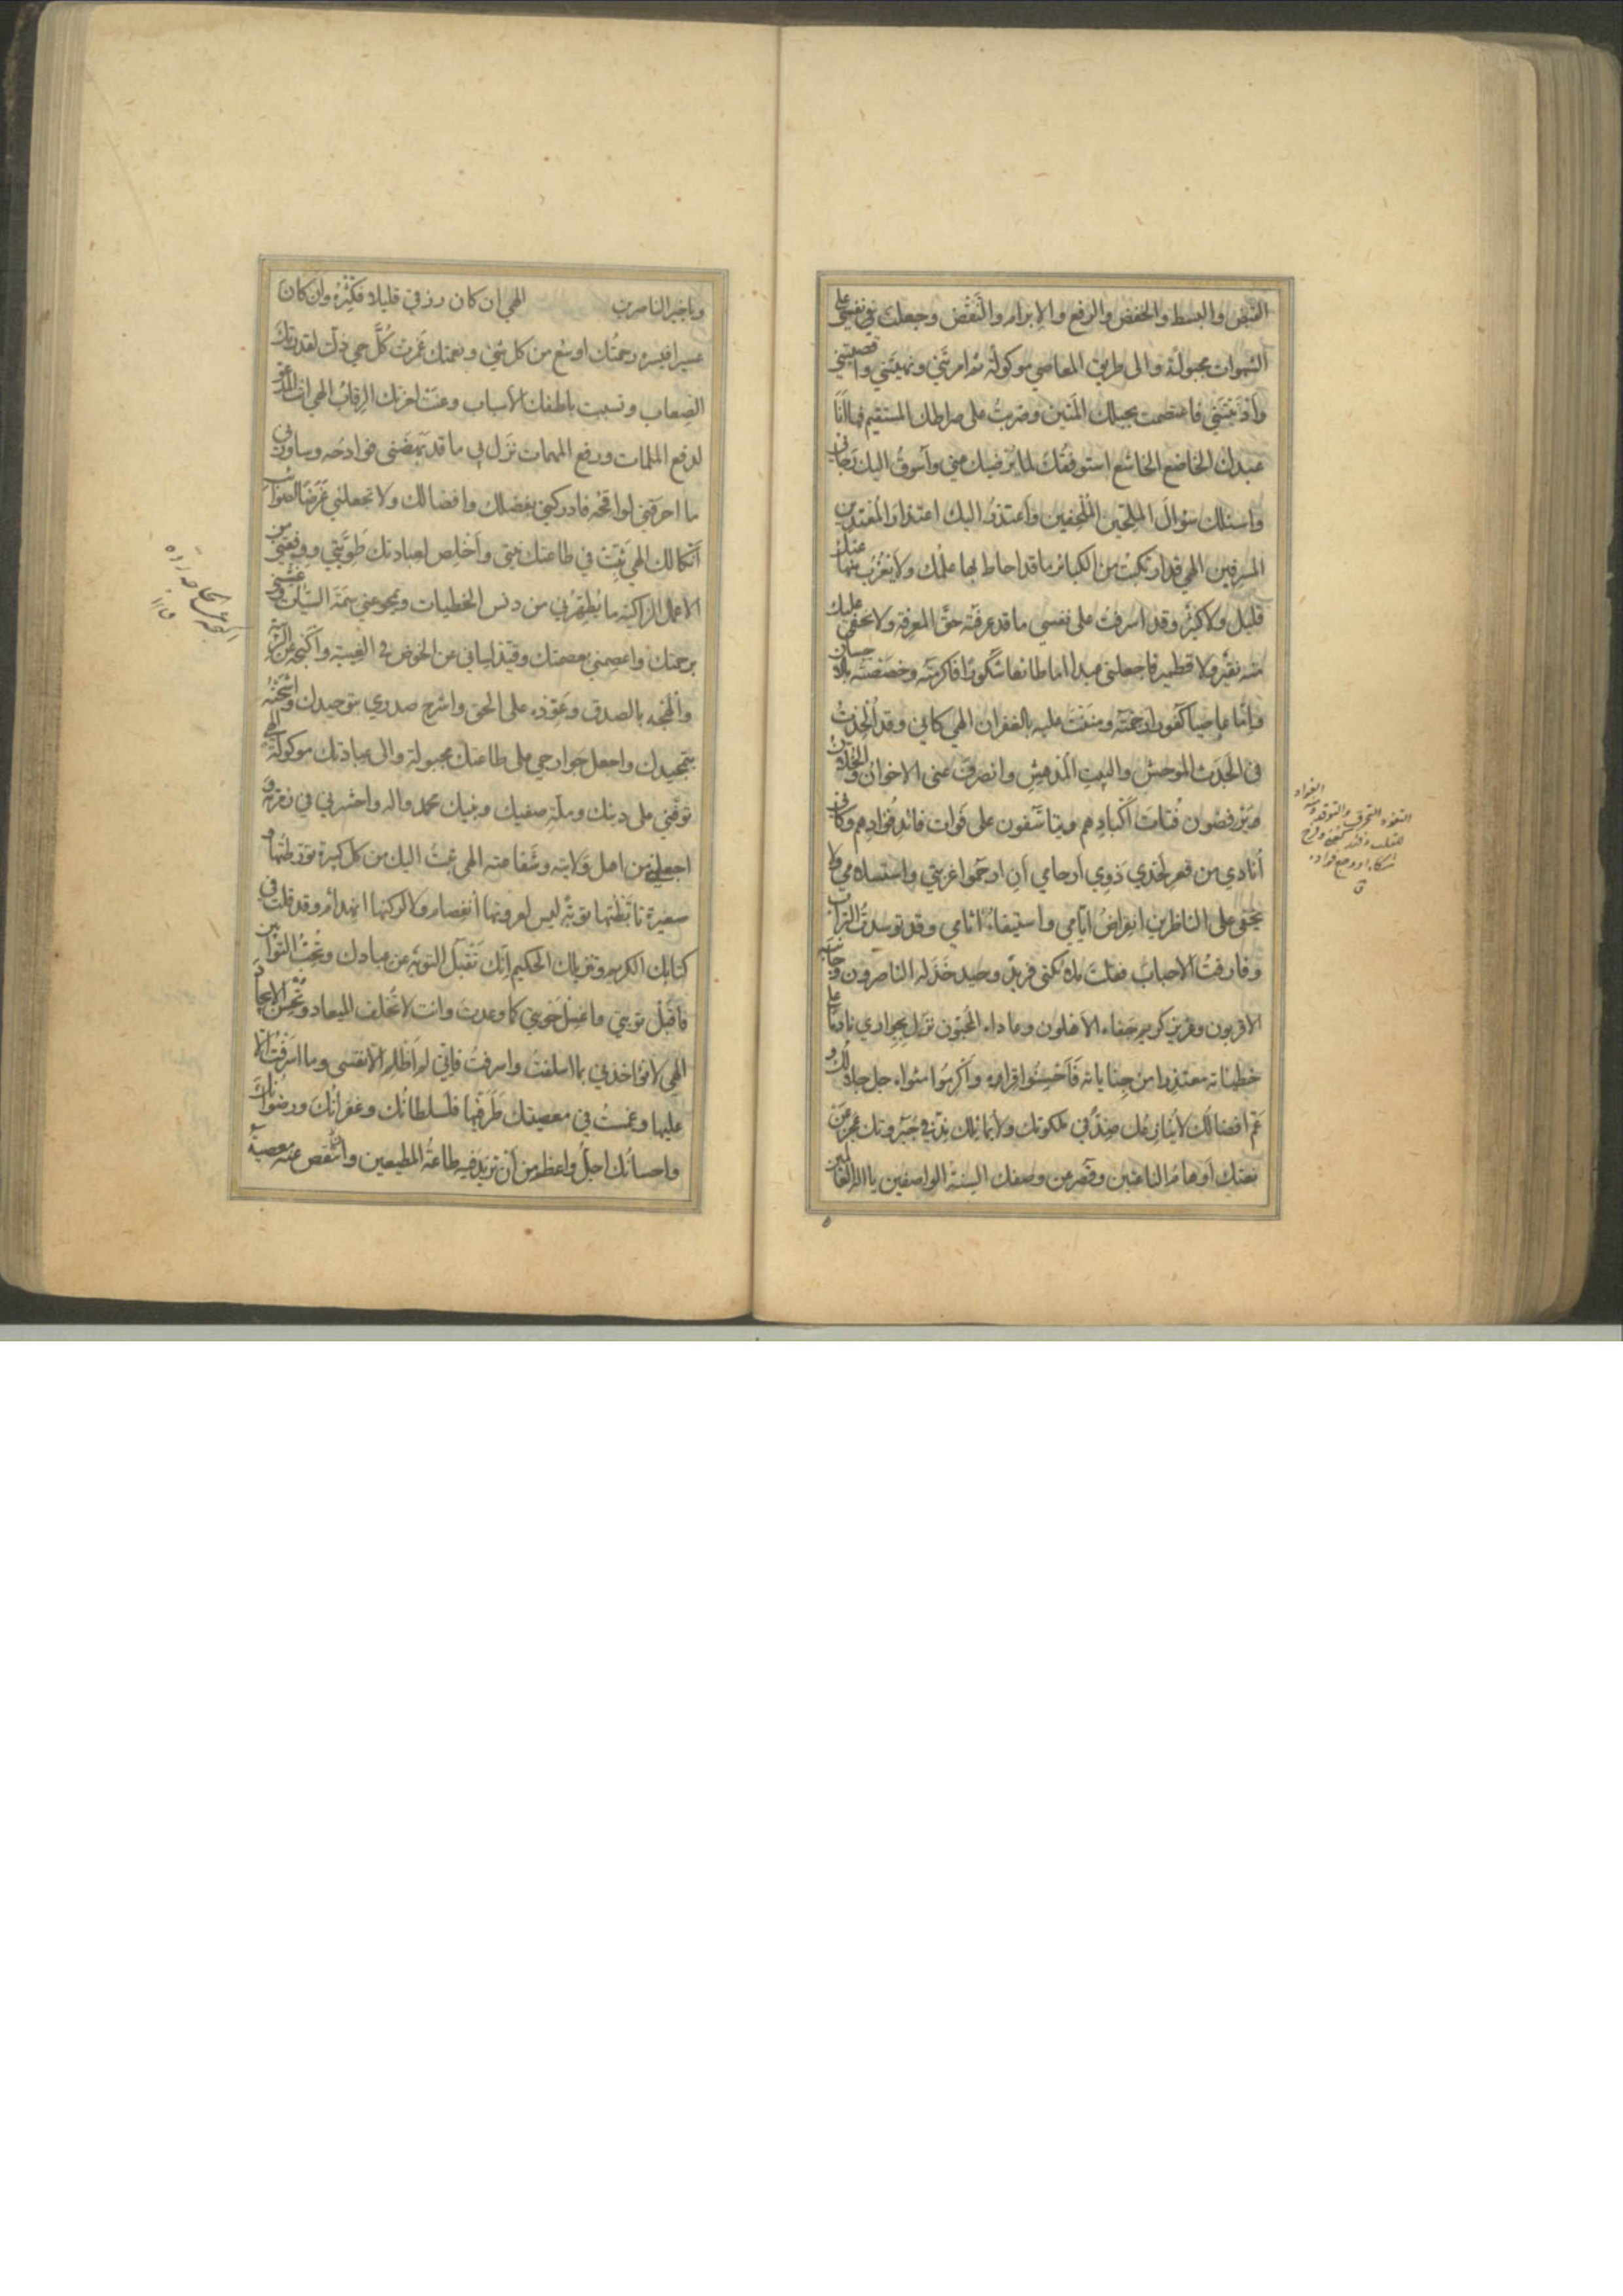 القبض والبسط والخفض والرفع والإبرام والنقض وجعلت في نفسي على
الشهوات مجبولة والى طريق المعاصي موكولة ثم امرتني ونهيتني واقصيتني
وأدنيتني فاعتصمت بحبلك المتين وضربت على صراطك المستقيم فها أنا
عبدك الخاضع الخاشع استوفقك لما يرضيك مني وأسوق اليك رجائي
واسئلك سؤال الملحين الملحفين وأعتذر اليك اعتذار المعتدين
المسرفين الهي قد ارتكبت من الكبائر ما قد احاط بها علمك ولا يعزب عنك منها
قليل ولا كثير وقد اسرفت على نفسي ما قد عرفته حق المعرفة ولا يخفى عليك
منه نقير ولا قطمير فاجعلني عبدا اما طائعا شكورا فاكرمته وخصصته بالاحسان
وإما عاصيا كفورا رحمته ومننت عليه بالغفران الهي كاني وقد ألحدت
في الجدث الموحش والبيت المدهش وانصرف عني الاخوان والخلان
يرفضون فتات أكبادهم ويتأسفون على فوات فائد فؤادهم وكأني
أنادي من قعر لحدي ذوي أرحامي أن ارحموا غربتي واستسلامي ولا
يخفى على الناظرين انقراض أيامي واستيفاء اثامي وقد توسدت التراب
وفارقت الاحباب فقلت ملائكتي فريد وحيد خذله الناصرون وجانبه
الاقربون وعزيز كريم جفاه الأهلون وعاداه المحبون نزل بجواري نادما على
خطيئاته معتذرا من جناياته فأحسنوا قراه وأكرموا مثواه جل جلالك و
عم افضالك لا يشاركك ضد في ملكوتك ولا يماثلك ند في جبروتك عجز عن
نعتك أوهام الناعتين وقصر عن وصفك السنة الواصفين يا اله العالمين
ويا خير الناصرين الهي ان كان رزقي قليلا فكثره وان كان
عسيرا فيسره رحمتك اوسع من كل شئ ونعمتك غمرت كل حي ذلت لقدرتك
الصعاب وتسببت بلطفك الأسباب وعنت لعزتك الرقاب الهي انت المدعو
لدفع الملمات ورفع المهمات نزل بي ما قد بهضني فوادحه وساورني
ما احرقني لواقحه فادركني بفضلك وافضالك ولا تجعلني غرضا لصوائب
أنكالك الهي ثبت في طاعتك نيتي وأخلص لعبادتك طويتي ووفقني من
الاعمال الزاكية ما يطهرني من دنس الخطيات ويمحو عني سمة السيئات وغشني
برحمتك واعصمني بعصمتك وقيد لساني عن الخوض في الغيبة واكبحه عن
وألهجه بالصدق وعوده على الحق واشرح صدري بتوحيدك واشحنه
بتمجيدك واجعل جوارحي على طاعتك مجبولة والى عبادتك موكولة الهي
توفني على دينك وملة صفيك ونبيك محمد واله واحشرني في زمرته و
اجعلني من اهل ولايته وشفاعته الهي تبت اليك من كل كبيرة تورطتها و
صغيرة تأبطتها توبة ليس لعروتها انفصام ولا لركنها انهدام وقد قلت في
كتابك الكريم وتنزيلك الحكيم انك تقبل التوبة عن عبادك وتحب التوابين
فاقبل توبتي واغسل حوبتي كما وعدت وانت لا تخلف الميعاد وتحسن الايجاد
الهي لا تؤاخذني بما اسلفت واسرفت فاني لم أظلم الا نفسي وما اسرفت الا
عليها وغمست في معصيتك طرفيها فلسلطانك وغفرانك ورضوانك
واحسانك اجل واعظم من أن تزيد فيه طاعة المطيعين وانتقص عنه معصية
الفؤاد
التفؤد التحرق والتوقد ومنه